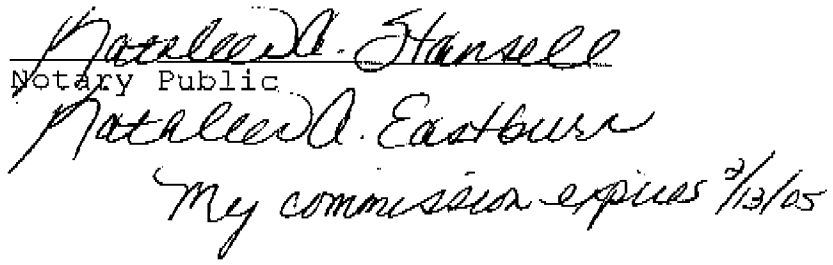 Kathleen A. Stansell
Notary Public
Kathleen A. Eastburn
My commission expires 2/13/05